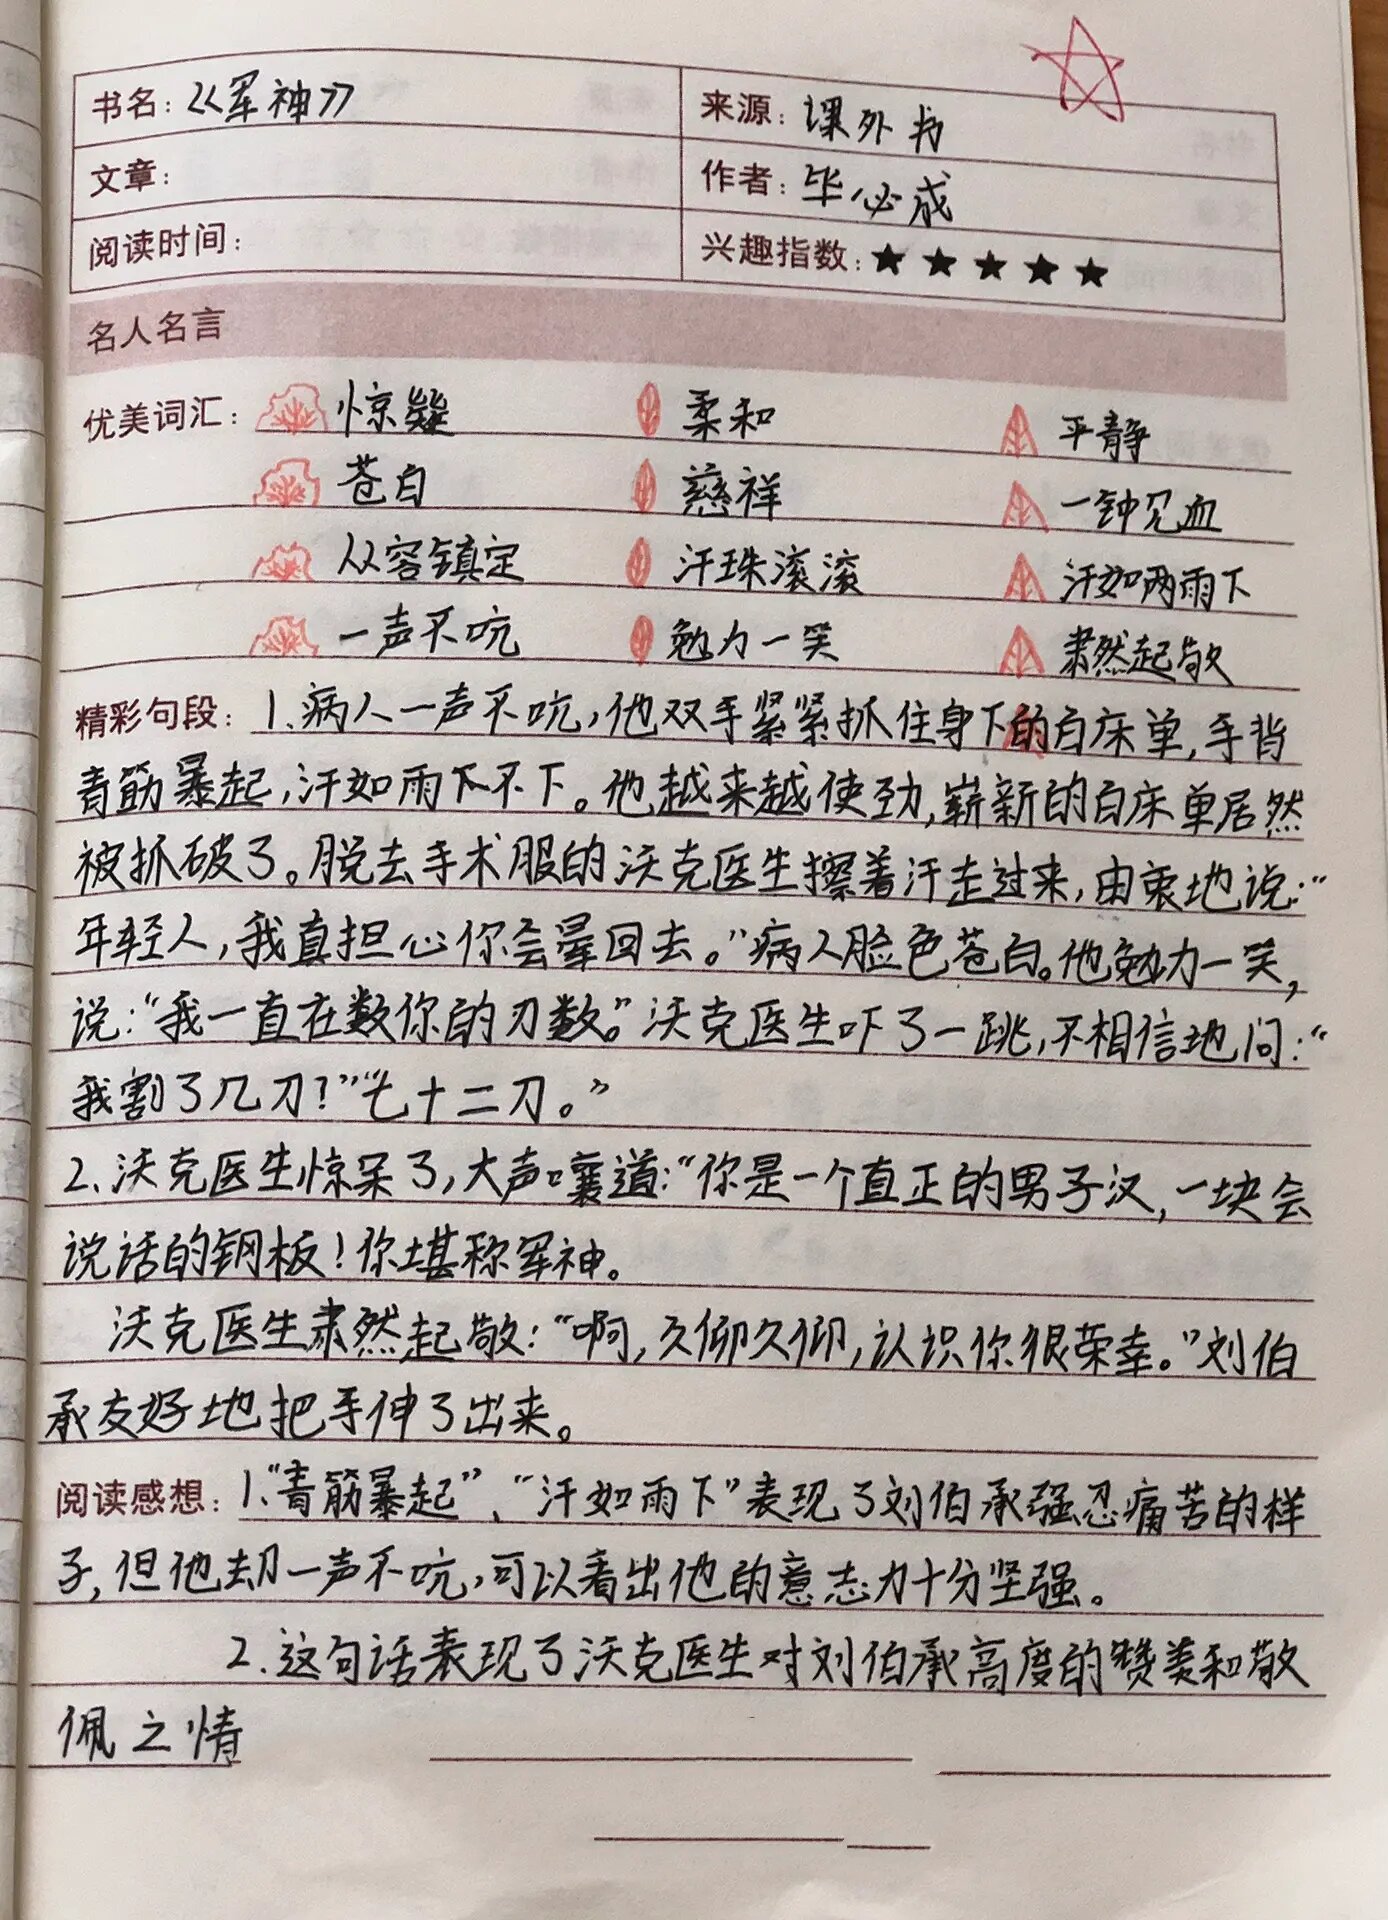 书名:《军神》 来源: 课外书
文章: 作者: 毕必成
阅读时间: 兴趣指数: ★ ★ ★ ★ ★
名人名言
优美词汇: 惊疑 柔和 平静
苍白 慈祥 一钟见血
从容镇定 汗珠滚滚 汗如两雨下
一声不吭 勉力一笑 肃然起敬
精彩句段: 1.病人一声不吭,他双手紧紧抓住身下的白床单,手背
青筋暴起,汗如雨下不下。他越来越使劲,崭新的白床单居然
被抓破了。脱去手术服的沃克医生擦着汗走过来,由衷地说:“
年轻人,我真担心你会晕回去。”病人脸色苍白。他勉力一笑,
说:“我一直在数你的刀数。”沃克医生吓了一跳,不相信地问:“
我割了几刀?”“七十二刀。”
2.沃克医生惊呆了,大声嚷道:“你是一个直正的男子汉,一块会
说话的钢板!你堪称军神。
沃克医生肃然起敬:“啊,久仰久仰,认识你很荣幸。”刘伯
承友好地把手伸了出来。
阅读感想: 1.“青筋暴起”、“汗如雨下”表现了刘伯承强忍痛苦的样
子,但他却一声不吭,可以看出他的意志力十分坚强。
2.这句话表现了沃克医生对刘伯承高度的赞美和敬
佩之情